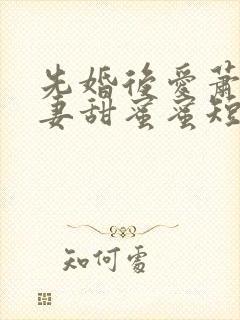 先婚後愛蕭
妻甜蜜蜜短
知何處